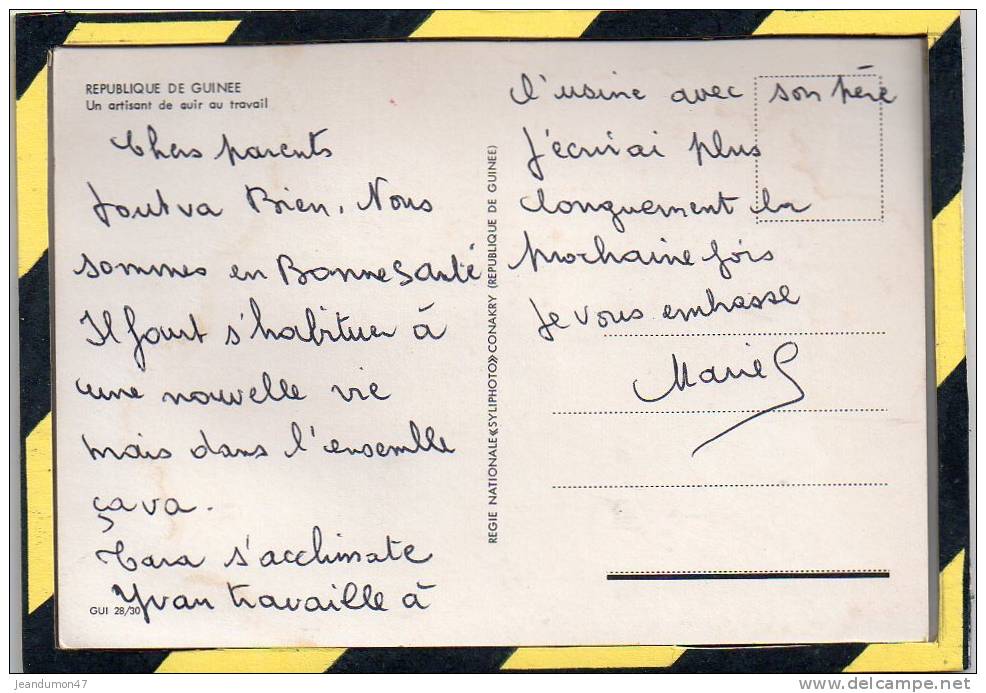 REPUBLIQUE DE GUINEE
Un artisant de cuir au travail
Chers parents
Tout va Bien. Nous
sommes en Bonne Santé
Il faut s'habituer à
une nouvelle vie
mais dans l'ensemble
ça va.
Tara s'acclimate
Yvan travaille à
GUI 28/30
REGIE NATIONALE «SYLIPHOTO» CONAKRY (REPUBLIQUE DE GUINEE)
l'usine avec son père
J'écrirai plus
longuement la
prochaine fois
Je vous embrasse
Marie
jeandumon47
delcampe.net